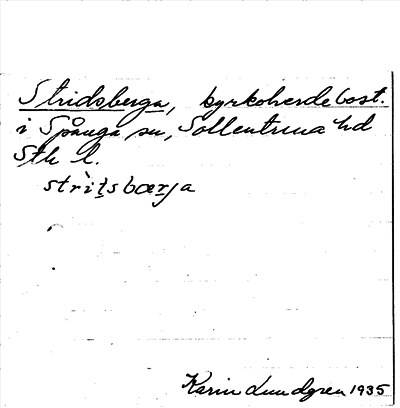 Stridsberga, kyrkoherdebost.
i Spånga sn, Sollentuna hd
Sth l.
strìt̠sbær̠ja
Karin Lundgren 1935